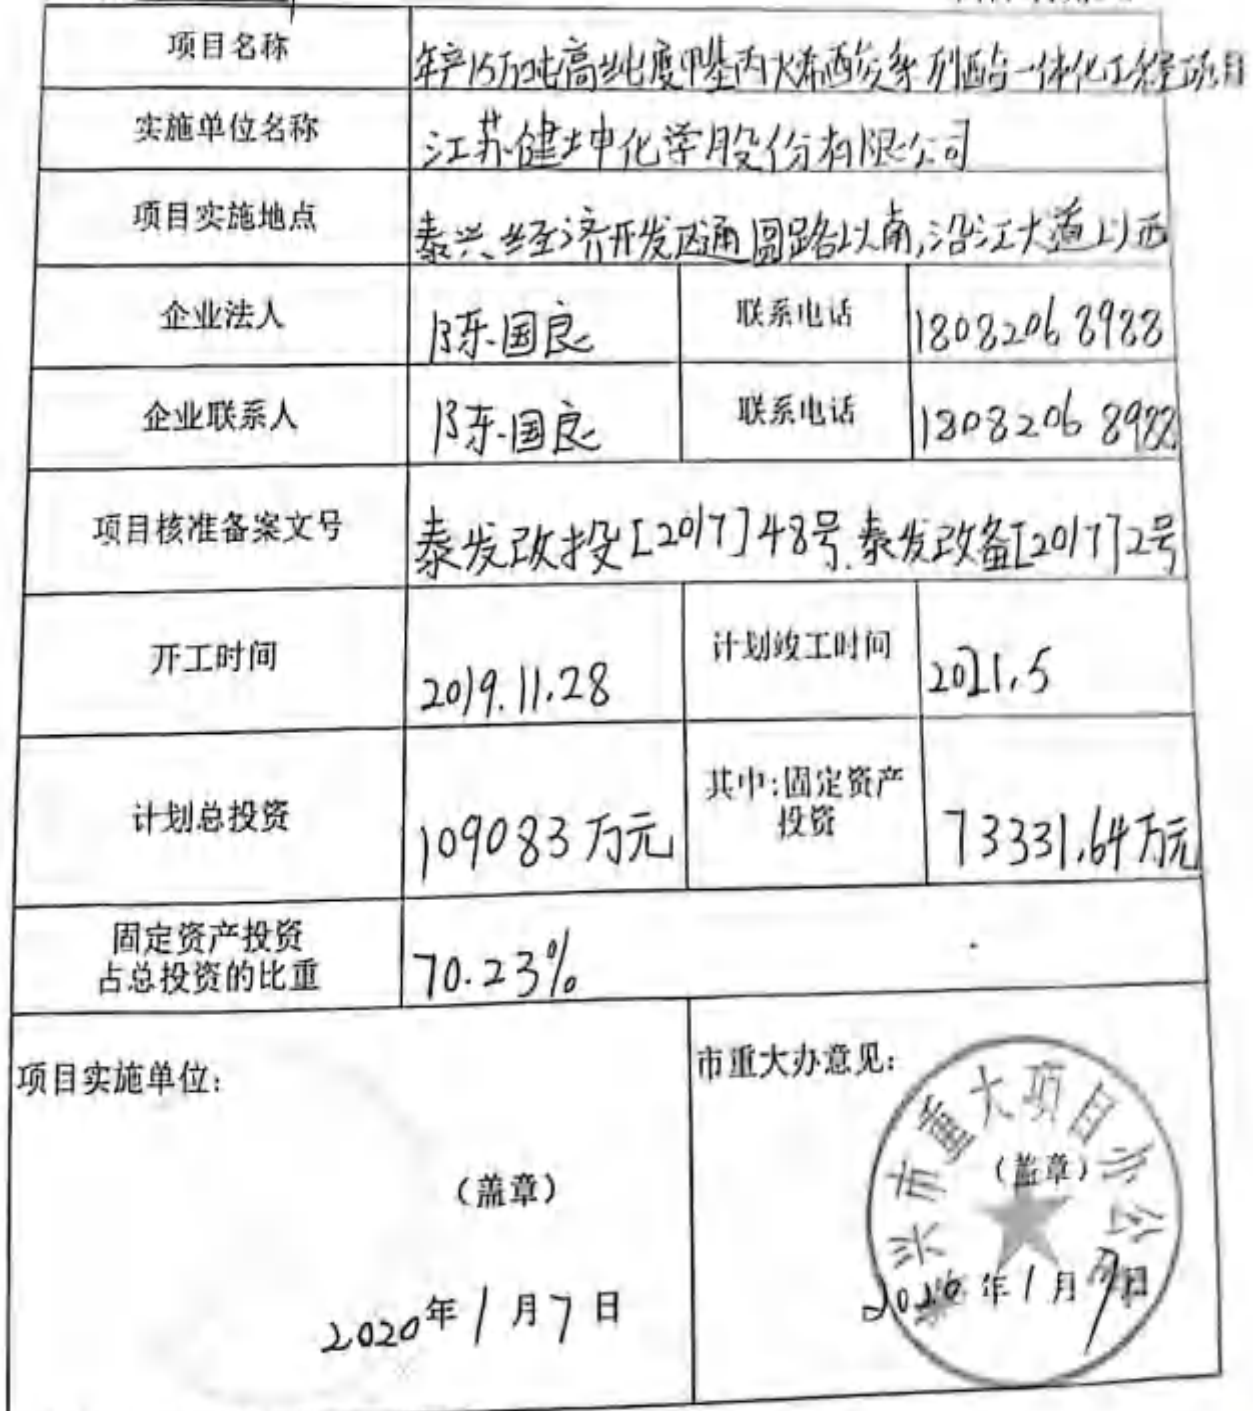 项目名称 年产15万吨高纯度甲基丙烯酸系列酯一体化工程项目
实施单位名称 江苏健坤化学股份有限公司
项目实施地点 泰兴经济开发区通园路以南,沿江大道以西
企业法人 陈国良 联系电话 18082068988
企业联系人 陈国良 联系电话 18082068988
项目核准备案文号 泰发改投[2017]48号.泰发改备[2017]2号
开工时间 2019.11.28 计划竣工时间 2021.5
计划总投资 109083万元 其中:固定资产
投资 73331.64万元
固定资产投资
占总投资的比重 70.23%
项目实施单位: 市重大办意见:
兴市重大项目办公
(盖章) (盖章)
2020年1月7日 年1月 日